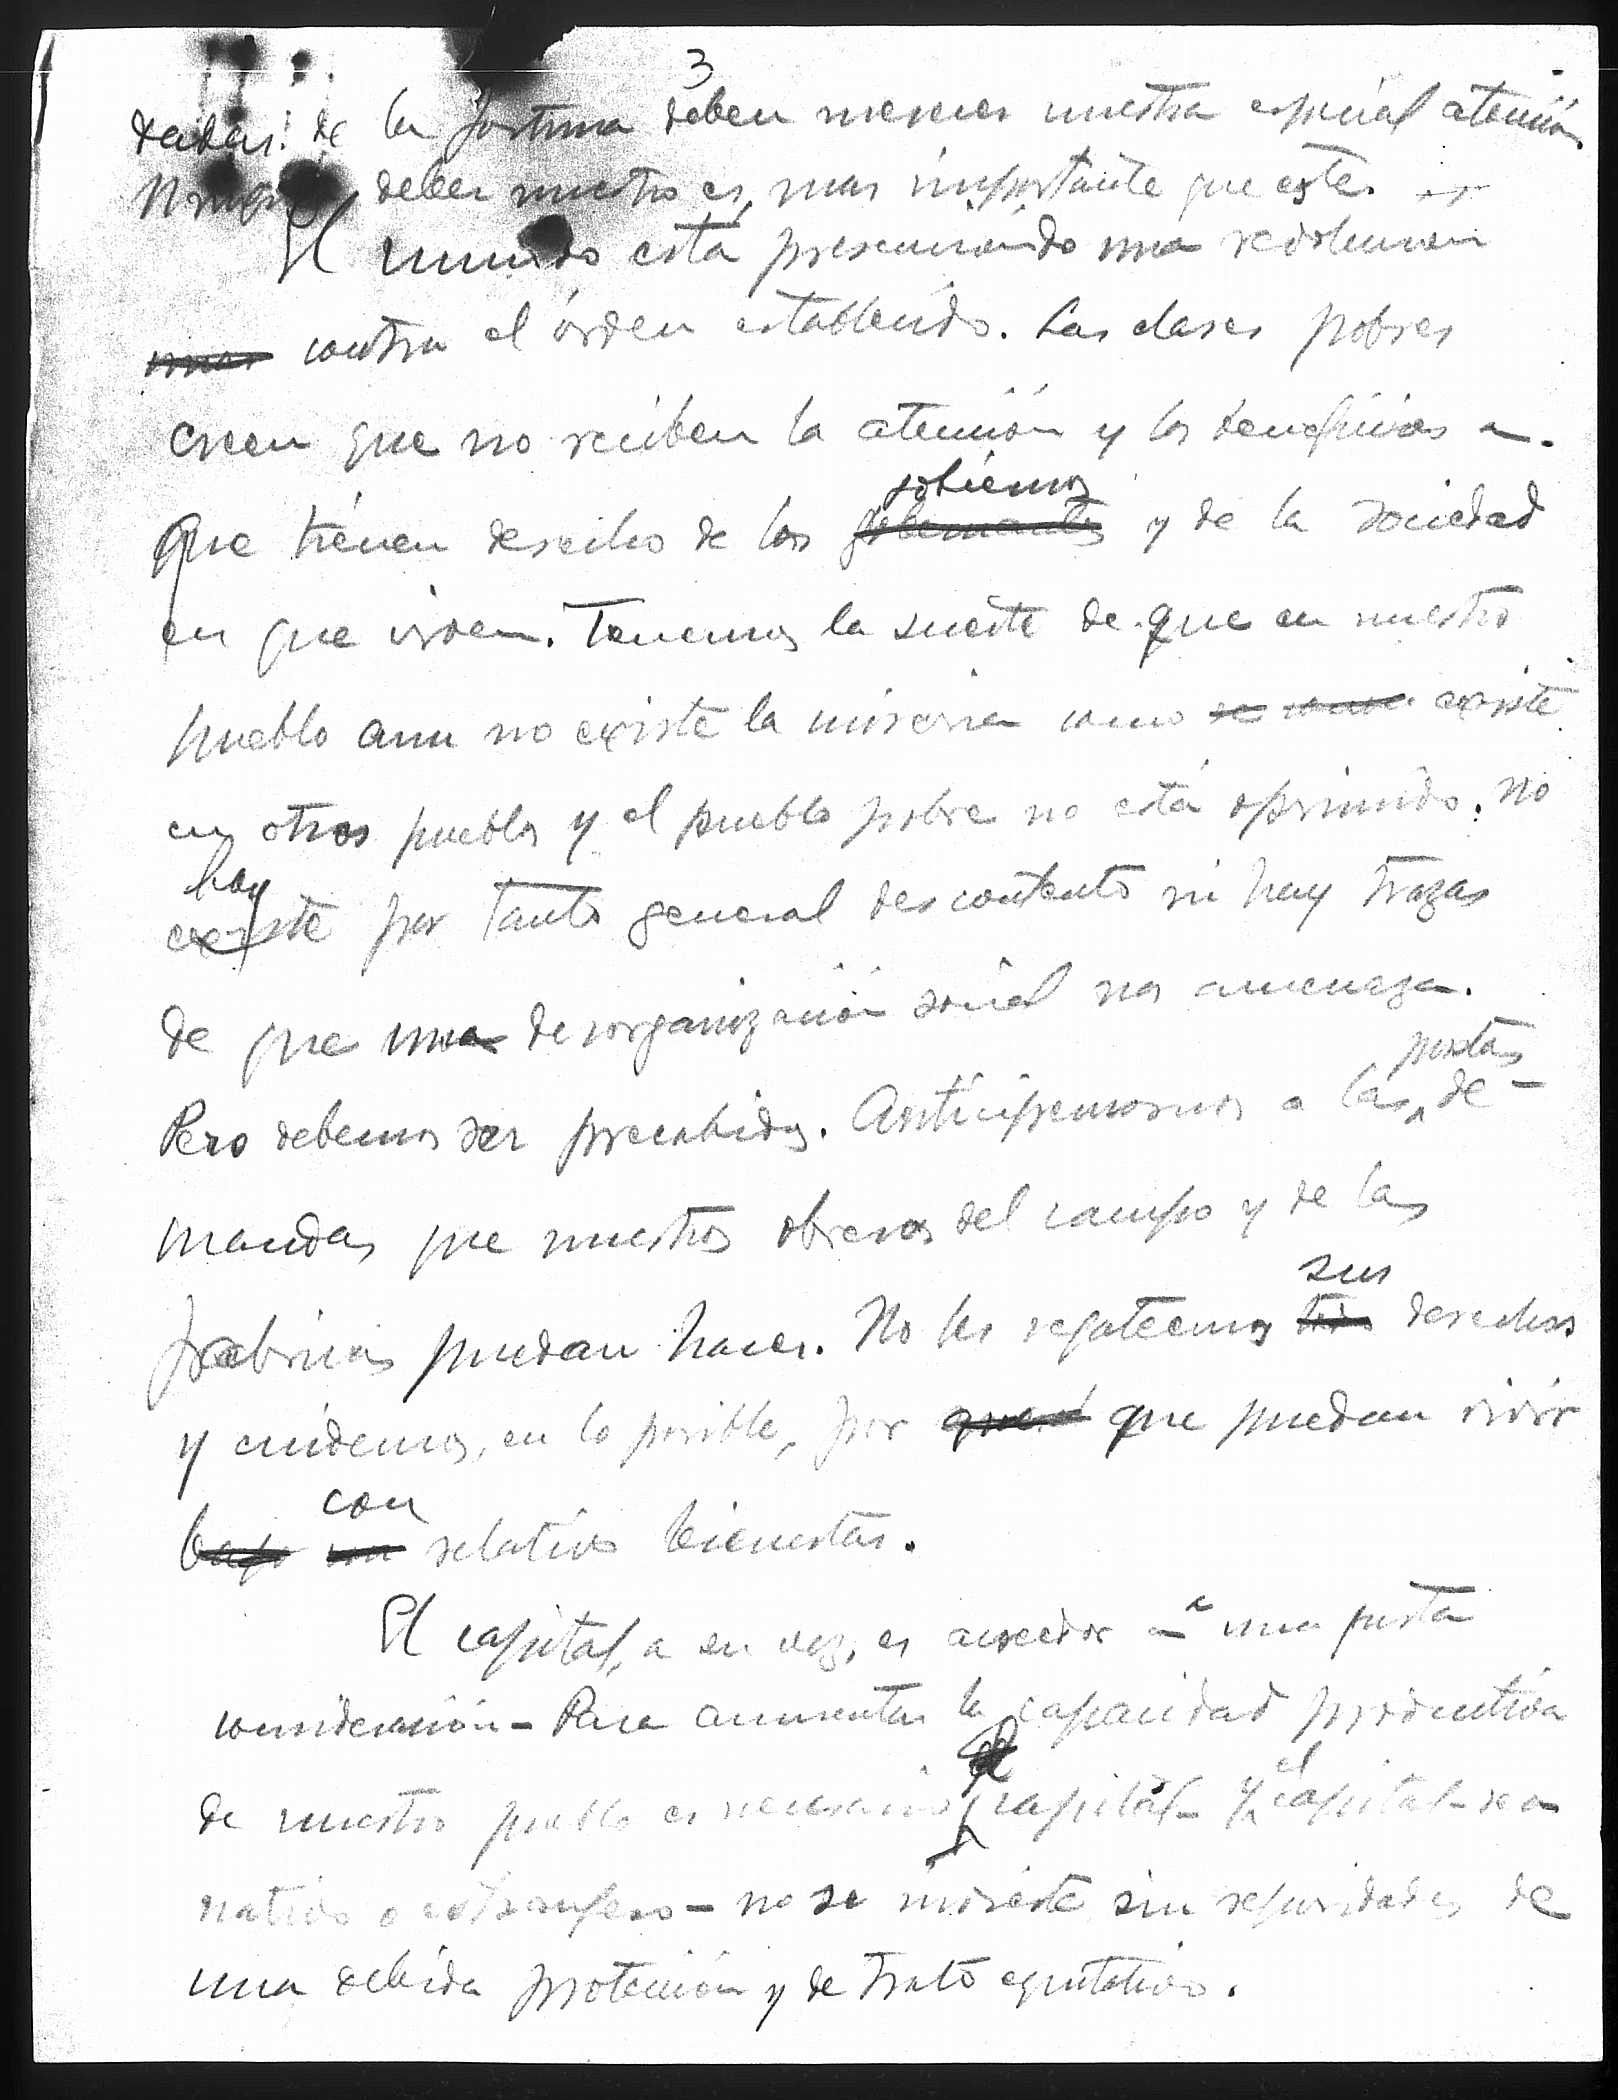 3
de la fortuna deben merecer nuestra especial atención.
deber nuestro es mas importante que este.
El mundo está presenciando una revolución
unas contra el órden establecido. Las clases pobres
creen que no reciben la atención y los beneficios a
gobiernos
que tienen derecho de los gobernantes y de la sociedad
en que viven. Tenemos la suerte de que en nuestro
pueblo aun no existe la miseria como se existe
en otros pueblos y el pueblo pobre no está oprimido. No
hay
existe por tanto general descontento ni hay trazas
de que una desorganización social nos amenaza.
justas
Pero debemos ser precabidos. Anticipemosnos a las de-
mandas que nuestros obreros del campo y de las
sus
fabricas puedan hacer. No les regateemos derechos
y cuidemos, en lo posible, por que que puedan vivir
con
bajo un relativo bienestar.
El capital, a su vez, es acreedor a una justa
consideración - Para aumentar la capacidad productiva
el
de nuestro pueblo es necesario capital - y capital - sea
nativo o extranjero - no se invierte sin seguridades de
una debida protección y de trato equitativo.